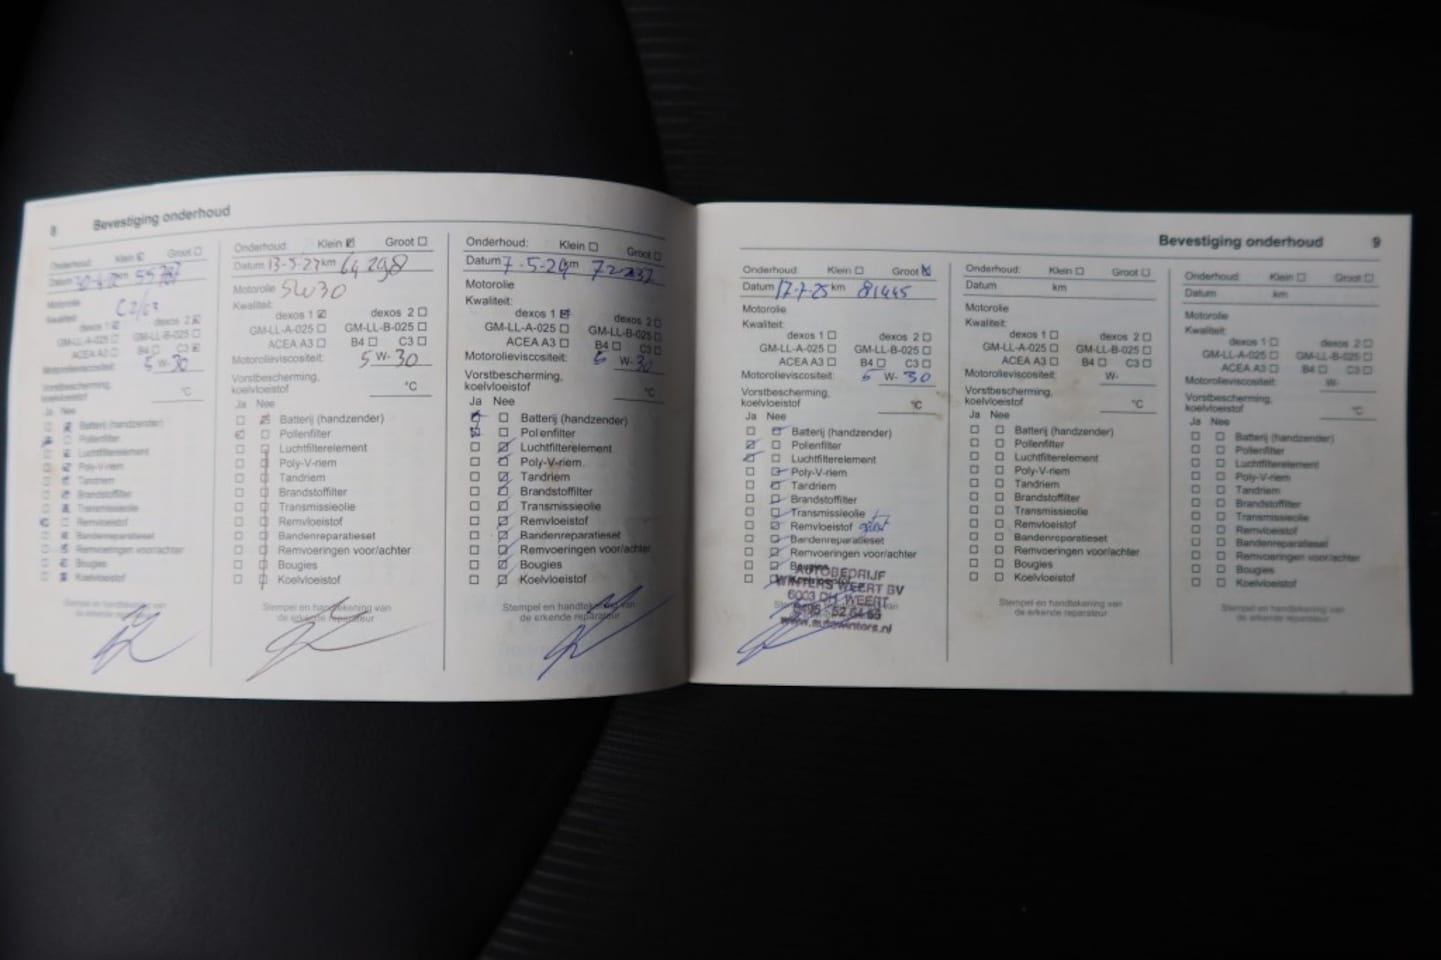 8 Bevestiging onderhoud
Onderhoud: Klein Groot
Datum km
Motorolie C2/C3
Kwaliteit:
dexos 1 dexos 2
GM-LL-A-025 GM-LL-B-025
ACEA A3 B4 C3
Motorolieviscositeit: 5 W- 30
Vorstbescherming,
koelvloeistof °C
Ja Nee
Batterij (handzender)
Pollenfilter
Luchtfilterelement
Poly-V-riem
Tandriem
Brandstoffilter
Transmissieolie
Remvloeistof
Bandenreparatieset
Remvoeringen voor/achter
Bougies
Koelvloeistof
Stempel en handtekening van
de erkende reparateur
Onderhoud: Klein Groot
Datum 13-5-23 km 64298
Motorolie 5W30
Kwaliteit:
dexos 1 dexos 2
GM-LL-A-025 GM-LL-B-025
ACEA A3 B4 C3
Motorolieviscositeit: 5 W- 30
Vorstbescherming,
koelvloeistof °C
Ja Nee
Batterij (handzender)
Pollenfilter
Luchtfilterelement
Poly-V-riem
Tandriem
Brandstoffilter
Transmissieolie
Remvloeistof
Bandenreparatieset
Remvoeringen voor/achter
Bougies
Koelvloeistof
Stempel en handtekening van
de erkende reparateur
Onderhoud: Klein Groot
Datum 7-5-24 km
Motorolie
Kwaliteit:
dexos 1 dexos 2
GM-LL-A-025 GM-LL-B-025
ACEA A3 B4 C3
Motorolieviscositeit: 5 W- 30
Vorstbescherming,
koelvloeistof °C
Ja Nee
Batterij (handzender)
Pollenfilter
Luchtfilterelement
Poly-V-riem
Tandriem
Brandstoffilter
Transmissieolie
Remvloeistof
Bandenreparatieset
Remvoeringen voor/achter
Bougies
Koelvloeistof
Stempel en handtekening van
de erkende reparateur
Bevestiging onderhoud 9
Onderhoud: Klein Groot
Datum 17-7-25 km 81445
Motorolie
Kwaliteit:
dexos 1 dexos 2
GM-LL-A-025 GM-LL-B-025
ACEA A3 B4 C3
Motorolieviscositeit: 5 W- 30
Vorstbescherming,
koelvloeistof °C
Ja Nee
Batterij (handzender)
Pollenfilter
Luchtfilterelement
Poly-V-riem
Tandriem
Brandstoffilter
Transmissieolie
Remvloeistof
Bandenreparatieset
Remvoeringen voor/achter
Bougies
AUTOBEDRIJF
WINTERS WEERT BV
6003 DH WEERT
www.autowinters.nl
Onderhoud: Klein Groot
Datum km
Motorolie
Kwaliteit:
dexos 1 dexos 2
GM-LL-A-025 GM-LL-B-025
ACEA A3 B4 C3
Motorolieviscositeit: W-
Vorstbescherming,
koelvloeistof °C
Ja Nee
Batterij (handzender)
Pollenfilter
Luchtfilterelement
Poly-V-riem
Tandriem
Brandstoffilter
Transmissieolie
Remvloeistof
Bandenreparatieset
Remvoeringen voor/achter
Bougies
Koelvloeistof
Stempel en handtekening van
de erkende reparateur
Onderhoud: Klein Groot
Datum km
Motorolie
Kwaliteit:
dexos 1 dexos 2
GM-LL-A-025 GM-LL-B-025
ACEA A3 B4 C3
Motorolieviscositeit: W-
Vorstbescherming,
koelvloeistof °C
Ja Nee
Batterij (handzender)
Pollenfilter
Luchtfilterelement
Poly-V-riem
Tandriem
Brandstoffilter
Transmissieolie
Remvloeistof
Bandenreparatieset
Remvoeringen voor/achter
Bougies
Koelvloeistof
Stempel en handtekening van
de erkende reparateur